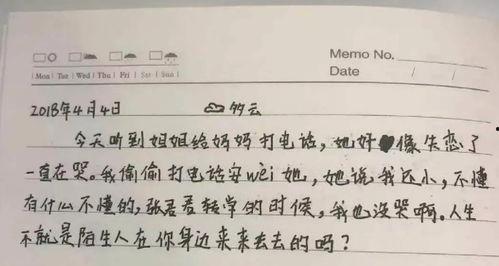 Memo No.
Mon | Tue | Wed | Thu | Fri | Sat | Sun
Date / /
2018年4月4日 多云
今天听到姐姐给妈妈打电话，她好像失恋了
一直在哭。我偷偷打电话安wèi她，她说我还小，不懂
有什么不懂的，张君君转学的时候，我也没哭啊。人生
不就是陌生人在你身边来来去去的吗？